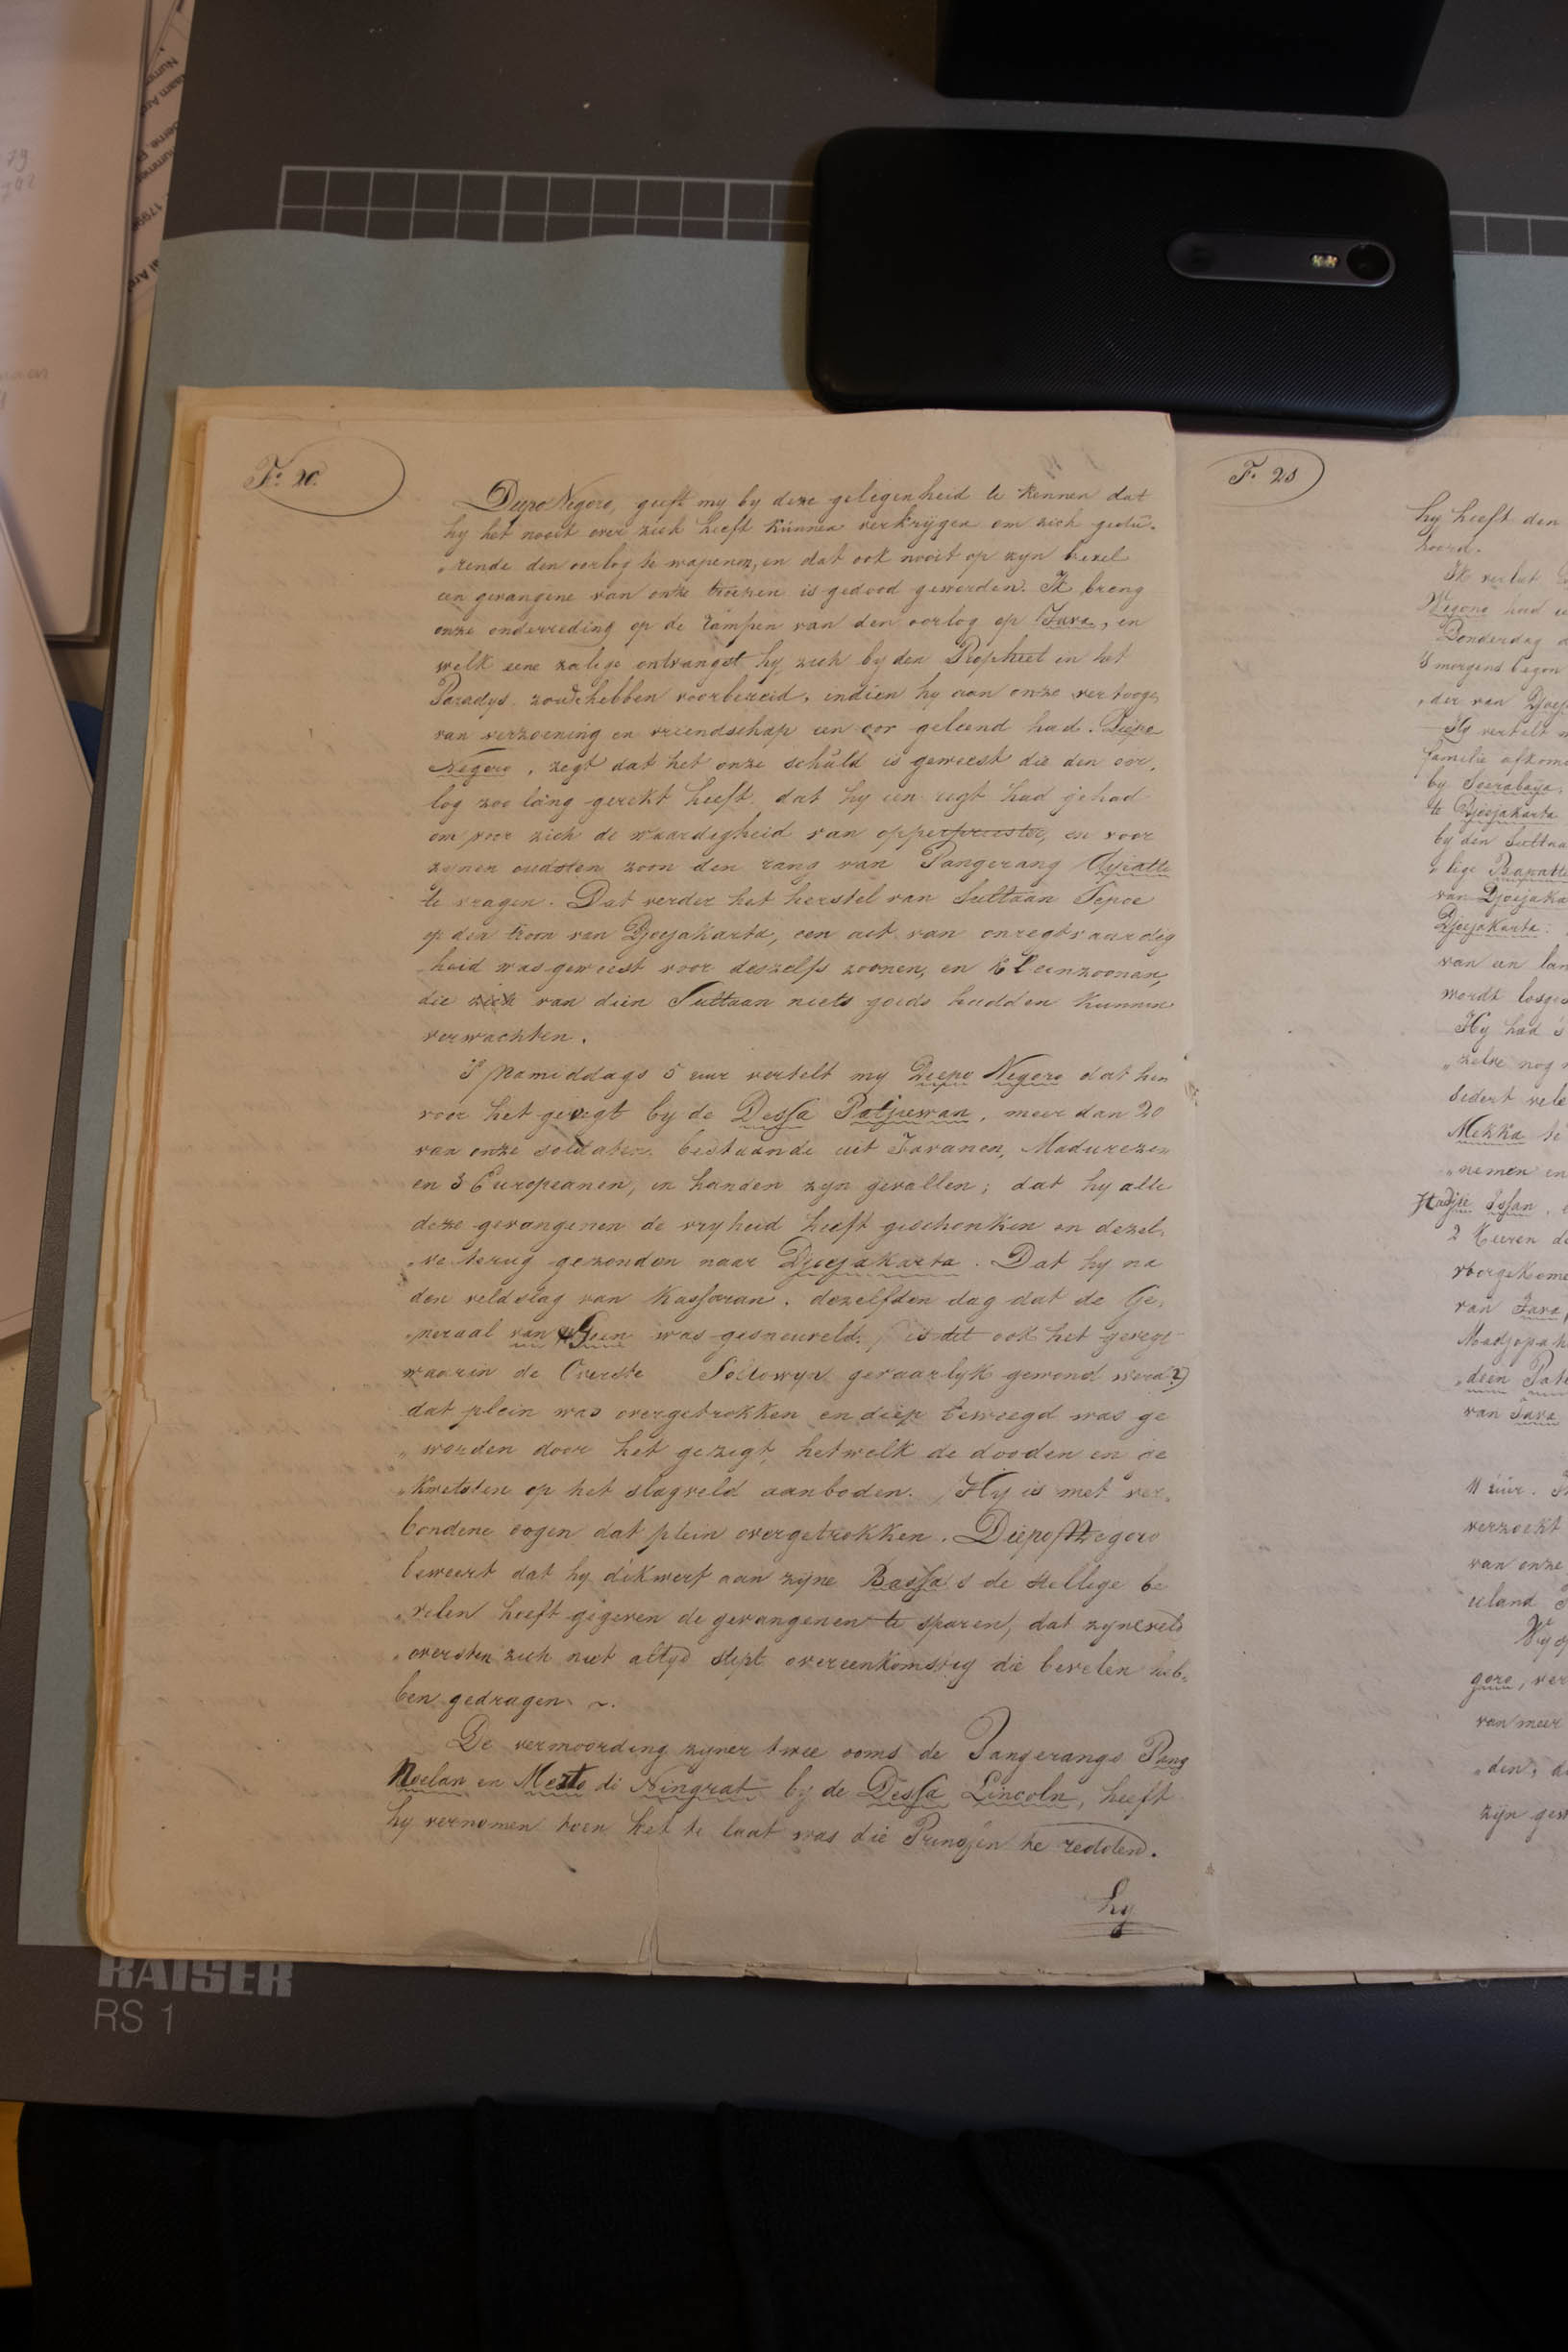 F. 20.
Diepo Negoro, geeft my by deze gelegenheid te kennen dat
hy het nooit over zich heeft kunnen verkrijgen om zich gedu-
„rende den oorlog te wapenen, en dat ook nooit op zyn bevel
een gevangene van onze troepen is gedood geworden. Ik breng
onze onderreding op de rampen van den oorlog op Java, en
welk eene zalige ontvangst hy zich by den Propheet in het
Paradys zoude hebben voorbereid, indien hy aan onze vertooge,
van verzoening en vriendschap een oor geleend had. Diepo
Negoro, zegt dat het onze schuld is geweest die den oor,
log zoo lang gerekt heeft, dat hy een regt had gehad
om voor zich de waardigheid van opperpriester, en voor
zynen oudsten zoon den rang van Pangerang
te vragen. Dat verder het herstel van Sultaan Sepoe
op den troon van Djocjakarta, een act van onregtvaardig
heid was geweest voor deszelfs zoonen, en kleinzoonen,
die van dien Sultaan niets goeds hadden kunnen
verwachten.
S' Namiddags 5 uur vertelt my Diepo Negoro dat hen
voor het gevegt by de Dessa Patjuwan, meer dan 20
van onze soldaten, bestaande uit Javanen, Madurezen
en 3 Europeanen, in handen zyn gevallen; dat hy alle
deze gevangenen de vryheid heeft geschonken en dezel,
„ve terug gezonden naar Djocjakarta. Dat hy na
den veldslag van Kassaran, dezelfden dag dat de Ge,
„neraal van Geen was gesneuveld, (is dit ook het gevegt
waarin de Overste Sollewyn gevaarlyk gewond werd?)
dat plein was overgetrokken en diep bewoogd was ge
„worden door het gezigt, hetwelk de dooden en ge
„kwetsten op het slagveld aanboden. Hy is met ver,
bondene oogen dat plein overgetrokken. Diepo Negoro
beweert dat hy dikwerf aan zijne Bassa's de stellige be
„velen heeft gegeven de gevangenen te sparen, dat zyne veld
„oversten zich niet altyd stipt overeenkomstig die bevelen heb-
ben gedragen ~.
De vermoording zyner twee ooms de Pangerangs Pang
Noelan en Merto di Ningrat by de Dessa Lincoln, heeft
hy vernomen toen het te laat was die Prinsen te redden.
hy
F. 21
hy heeft den
hoord.
Ik verlaat
Negoro had
Donderdag
's morgens begon
„der van
Hy vertelt
familie
by Soerabaya,
te Djocjakarta
by den Sultaa
„lige
van Djocjaka
Djocjakarta:
van een lan
wordt
Hy had 's
„zelve nog
Sedert vele
Mekka te
„nemen en
Hadjie
2
voorgekome
van Java
Madjopah
„deen Pat
van Java
11 uur.
verzoekt
van onze
eiland
goro, ver
van meer
„den, d
zijn gew
KAISER
RS 1